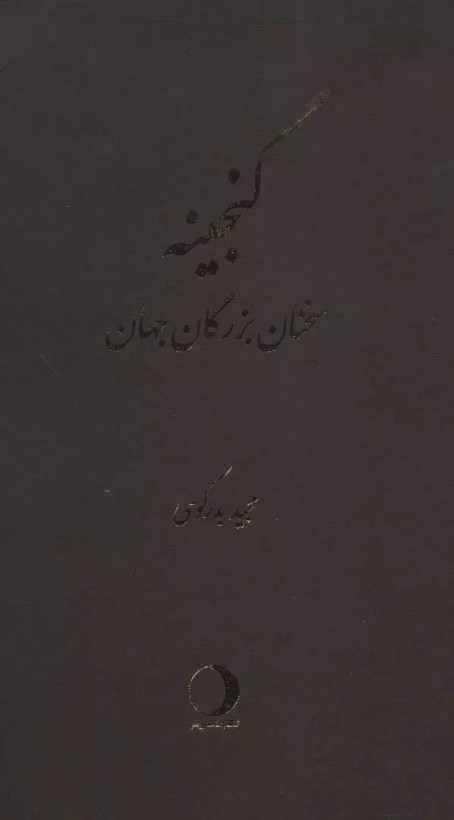 گنجینه
سخنان بزرگان جهان
مجید بدرکوهی